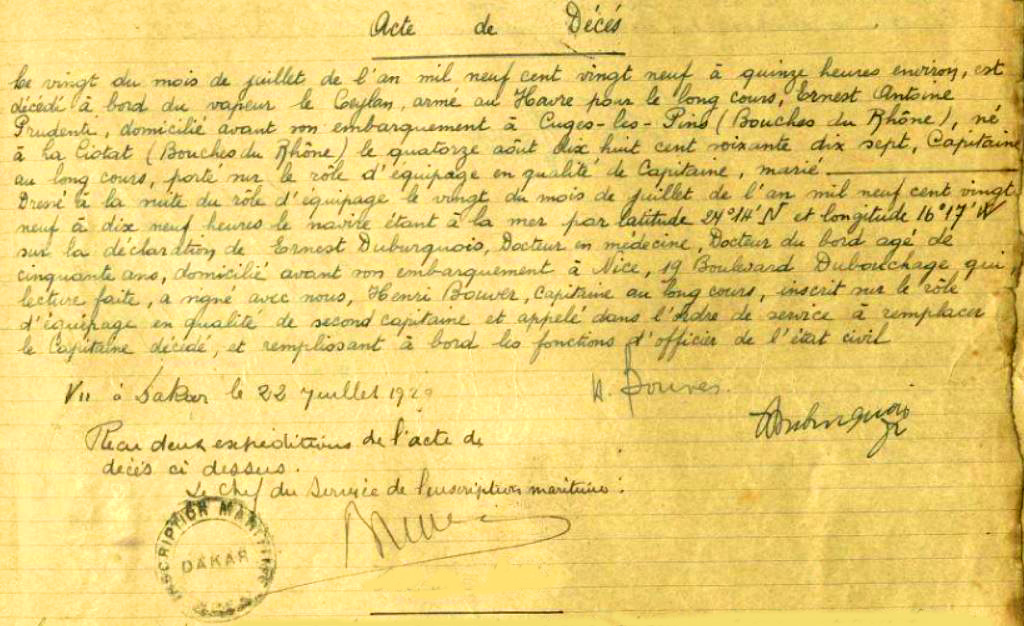 Acte de Décés
Le vingt du mois de juillet de l'an mil neuf cent vingt neuf à quinze heures environ, est
décédé à bord du vapeur le Ceylan, armé au Havre pour le long cours, Ernest Antoine
Prudenti, domicilié avant son embarquement à Cuges-les-Pins (Bouches du Rhône), né
à La Ciotat (Bouches du Rhône) le quatorze août dix huit cent soixante dix sept, Capitaine
au long cours, porté sur le rôle d'équipage en qualité de Capitaine, marié
Dressé à la suite du rôle d'équipage le vingt du mois de juillet de l'an mil neuf cent vingt
neuf à dix neuf heures le navire étant à la mer par latitude 24°14'N et longitude 16°17'W
sur la déclaration de Ernest Duburquois, Docteur en médecine, Docteur du bord agé de
cinquante ans, domicilié avant son embarquement à Nice, 19 Boulevard Dubouchage qui,
lecture faite, a signé avec nous, Henri Bouver, Capitaine au long cours, inscrit sur le rôle
d'équipage en qualité de second capitaine et appelé dans l'ordre de service à remplacer
le Capitaine décédé, et remplissant à bord les fonctions d'officier de l'état civil
H. Bouver.
Vu à Dakar le 22 Juillet 1929
Reçu deux expéditions de l'acte de
décès ci dessus.
Le Chef du Service de l'inscription maritime :
INSCRIPTION MARITIME
DAKAR